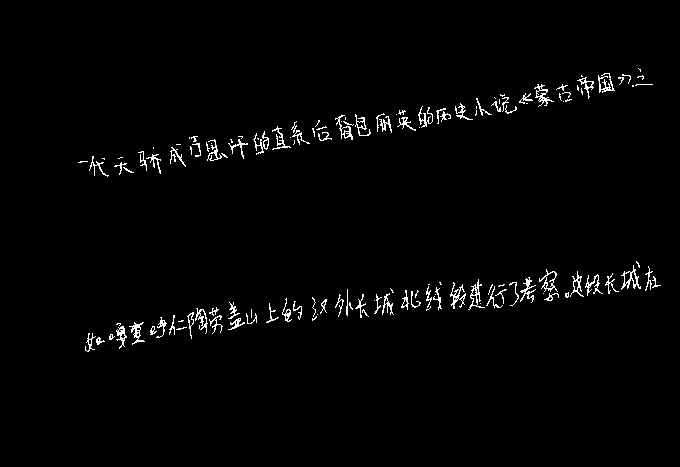 一代天骄成吉思汗的直系后裔包丽英的历史小说《蒙古帝国》之
如嘎查呼仁陶劳盖山上的汉外长城北线段进行了考察。这段长城在